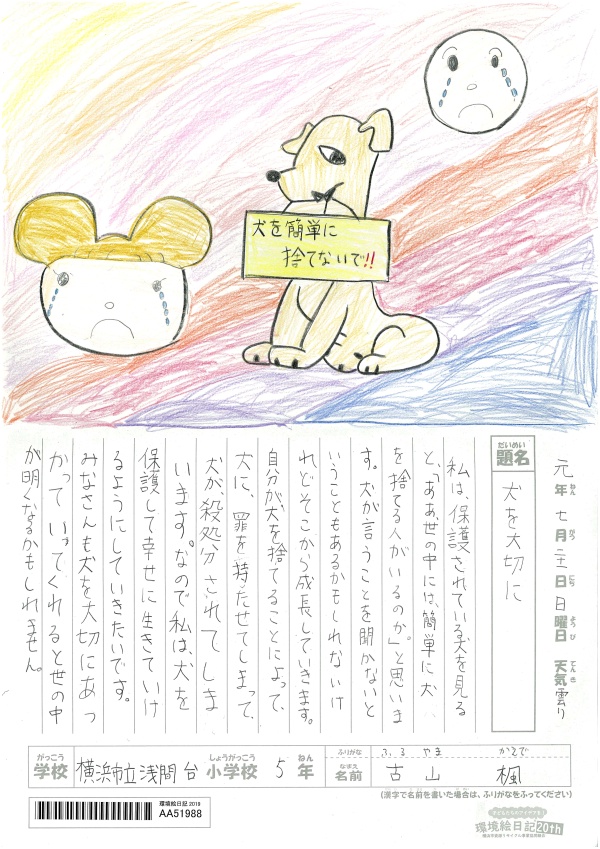 犬を簡単に
捨てないで!!
元年七月二十一日日曜日 天気 曇り
ねん がつ にち ようび てんき
だいめい
題名
犬を大切に
私は、保護されている犬を見る
と、「ああ、世の中には、簡単に犬
を捨てる人がいるのか。」と思いま
す。犬が言うことを聞かないと
いうこともあるかもしれないけ
れどそこから成長していきます。
自分が犬を捨てることによって、
犬に、罪を持たせてしまって、
犬が、殺処分されてしま
います。なので私は、犬を
保護して幸せに生きていけ
るようにしていきたいです。
みなさんも犬を大切にあつ
かっていってくれると世の中
が明くなるかもしれません。
がっこう しょうがっこう ねん
学校 横浜市立浅間台 小学校 5 年
ふりがな ふる やま かえで
なまえ
名前 古山 楓
(漢字で名前を書いた場合は、ふりがなをふってください)
環境絵日記 2019
AA51988
環境絵日記20th